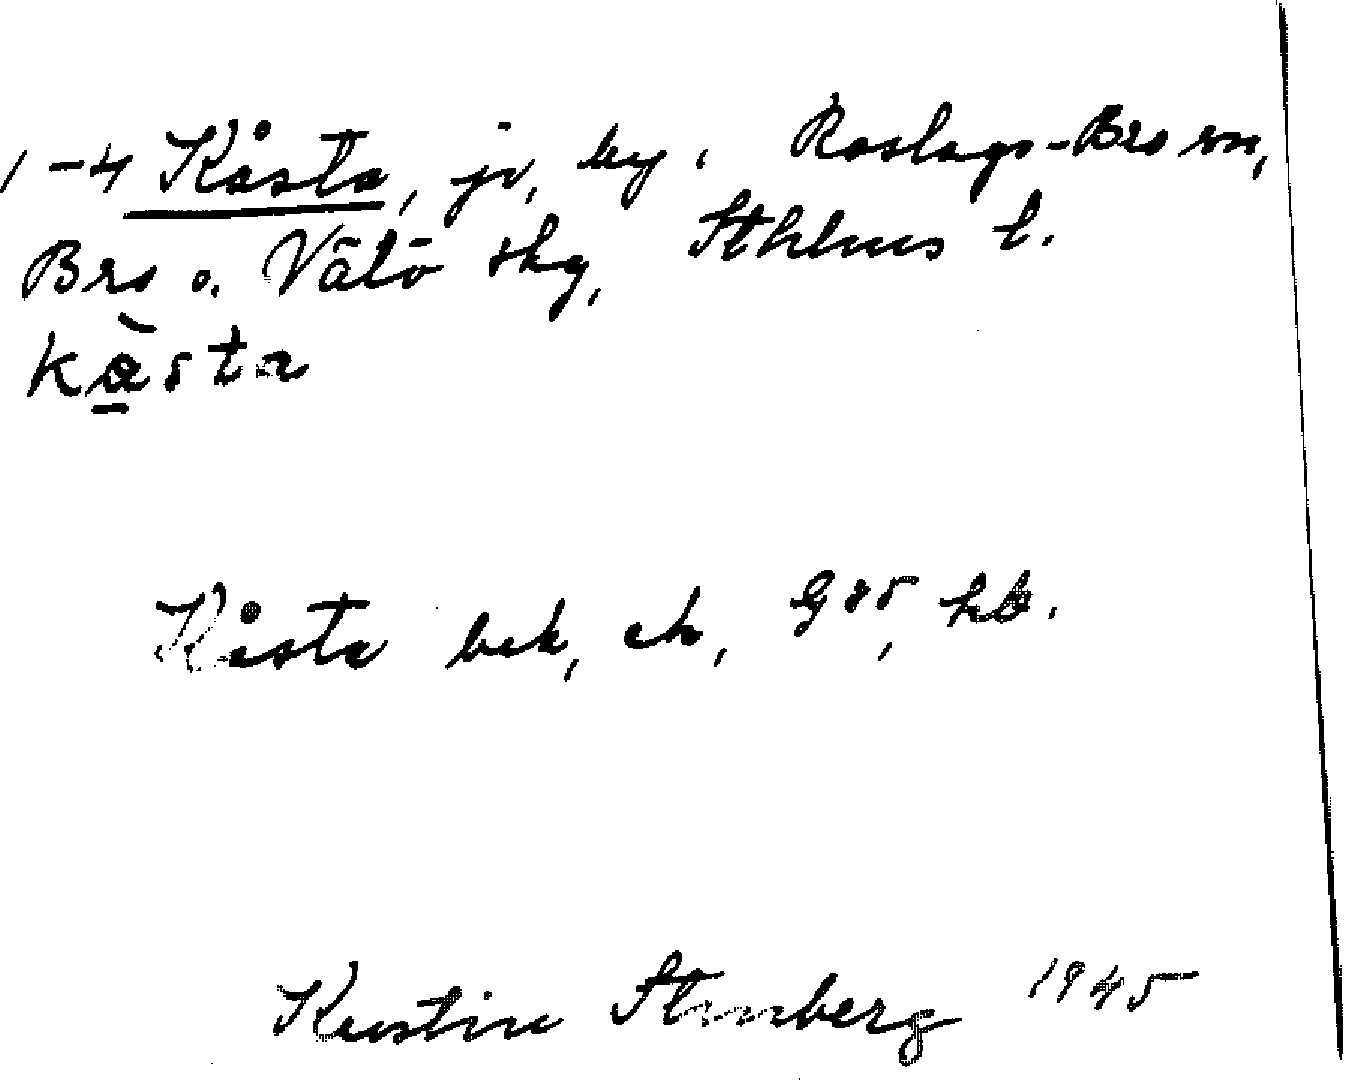 1-4 Kåsta, jv, by. Roslags-Bro sn,
Bro o. Vätö skg, Sthlms l.
kås̀ta
Kåsta bek, ek, G95, hb.
Kerstin Stenberg 1945